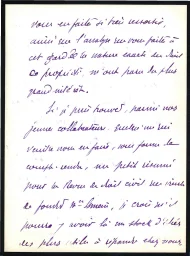 vous en faites si bien ressortir,
ainsi que l'analyse que vous faites à
cet égard de la nature exacte du droit
de propriété, m'ont paru du plus
grand intérêt.
Si je puis trouver, parmi nos
jeunes collaborateurs, quelqu'un qui
veuille nous en faire, sous forme de
compte-rendu, un petit résumé
pour la Revue de droit civil que vient
de fonder M. , je crois qu'il
pourra y avoir là un stock d'idées
des plus utiles à répandre chez nous